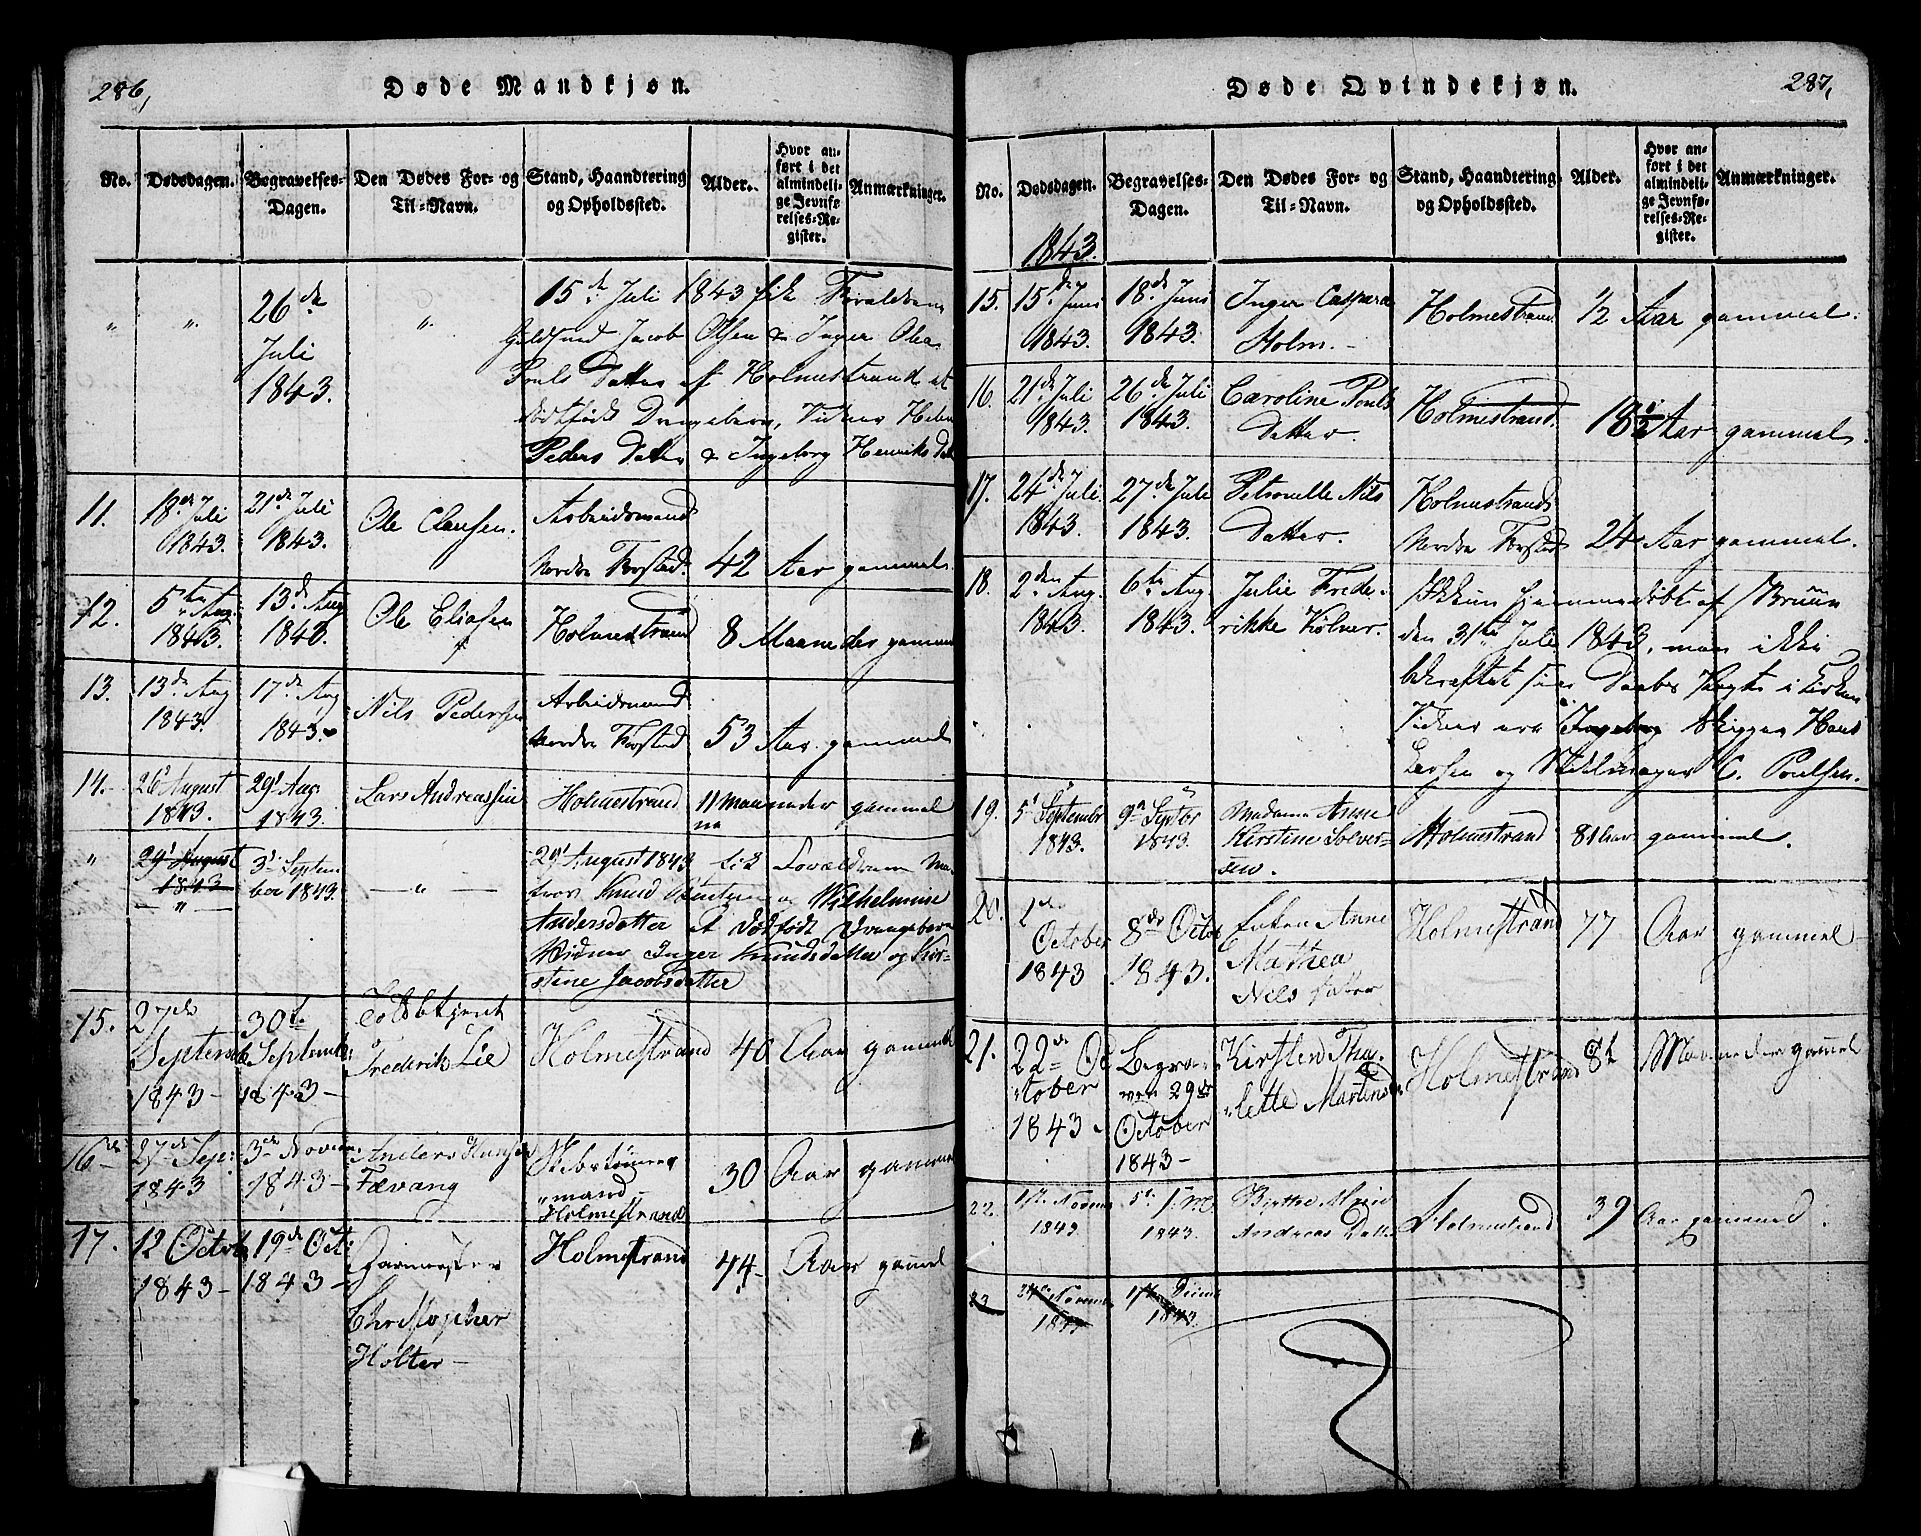 286,
Døde Mandkjøn.
No.
Dødsdagen.
Begravelses-
Dagen.
Den Dødes For- og
Til-Navn.
Stand, Haandtering
og Opholdssted.
Alder.
Hvor an-
ført i det
almindeli-
ge Jevnfø-
relses-Re-
gister.
Anmærkninger.
" ". 26de
Juli
1843.
".
15de Juli 1843 fik
Jacob Olsen & Inger Olea
Pouls Datter af Holmestrand et
dødfødt Drengebarn, Vidner Helene
Peders Datter & Ingeborg Henriks Dat
11. 18de Juli
1843.
21de Juli
1843.
Ole Clausen.
Arbeidsmand
Nordre Forstad.
42 Aar gammel.
12. 5te Aug.
1843.
13de Aug
1843.
Ole Eliasen
Holmestrand
8 Maaneder gammel
13. 13de Aug
1843.
17de Aug
1843.
Nils Pedersen
Arbeidsmand
Nordre Forstad
53 Aar gammel
14. 26d August
1843.
29d Aug.
1843.
Lars Andreassen
Holmestrand
11 Maaneder gammel
" 29d August
1843
"
3d Septem
ber 1843.
— " —
29d August 1843
Knud og Wilhelmine
Andersdatter et dødfødt Drengebarn
Vidner Inger Knudsdatter og Kir-
stine Jacobsdatter
15. 27de
September
1843 -
30te
September
1843 -
Toldbetjent
Frederik Lie
Holmestrand
40 Aar gammel
16de 27de Sep:
1843
3de Novem
1843 -
Anders Hansen
Fævang
Skibstømmer
mand
Holmestrand
30 Aar gammel
17. 12 Octob
1843 -
19de Oct:
1843 -
Farmester
Christopher
Holter -
Holmestrand
44 - Aar gammel
287,
Døde Qvindekjøn.
No.
Dødsdagen.
Begravelses-
Dagen.
Den Dødes For- og
Til-Navn.
Stand, Haandtering
og Opholdssted.
Alder.
Hvor an-
ført i det
almindeli-
ge Jevnfø-
relses-Re-
gister.
Anmærkninger.
1843.
15. 15de Juni
1843.
18de Juni
1843.
Inger Caspara
Holm. -
Holmestrand.
1/2 Aar gammel.
16. 21de Juli
1843.
26de Juli
1843.
Caroline Pouls
Datter.
Holmestrand.
18 1/2 Aar gammel.
17. 24de Juli
1843.
27de Juli
1843.
Petronelle Nils
Datter.
Holmestrands
Nordre Forstad
24 Aar gammel.
18. 2den Aug.
1843.
6te Aug
1843.
Julie Frede-
rikke Kølner.
hjemmedøbt af Bruun
den 31te Juli 1843, men ikke
bekræftet sin Daabes Pagt i Kirken
Vidner ere Ingeborg Skipper Hans
Larsen og C. Poulsen.
19. 5d Septembr
1843.
9de Septbr
1843.
Madame Anne
Kirstine Solver-
sen.
Holmestrand
81 Aar gammel.
20. 1de
October
1843
8de Octob
1843.
Enken Anne
Mathea
Nils Dater
Holmestrand
77 Aar gammel
21. 22de Oc
tober
1843.
Begra-
ven 29de
October
1843 -
Kirsten Tha-
lette Martinsen
Holmestrand
8 1/2 Maaneder gammel
22. 1st Novem
1843.
5te f. M
1843.
Birthe Marie
Andreas Datter
Holmestrand
39 Aar gammel.
23 24de Novem
1843
1ste Decem
1843.